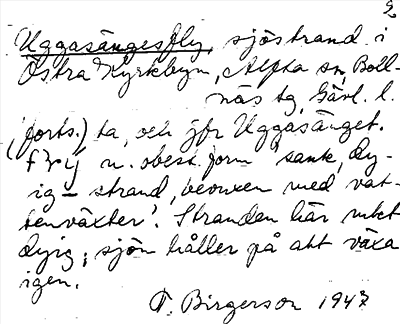 2
Uggasängesfly, sjöstrand i
Östra Kyrkbyn, Alfta sn, Boll-
näs tg, Gävl. l.
(forts.) ta, och jfr Uggasänget.
fly n. obest. form 'sank, dy-
ig strand, bevuxen med vat-
tenväxter'. Stranden här mkt
dyig; sjön håller på att växa
igen.
T. Birgerson 1947